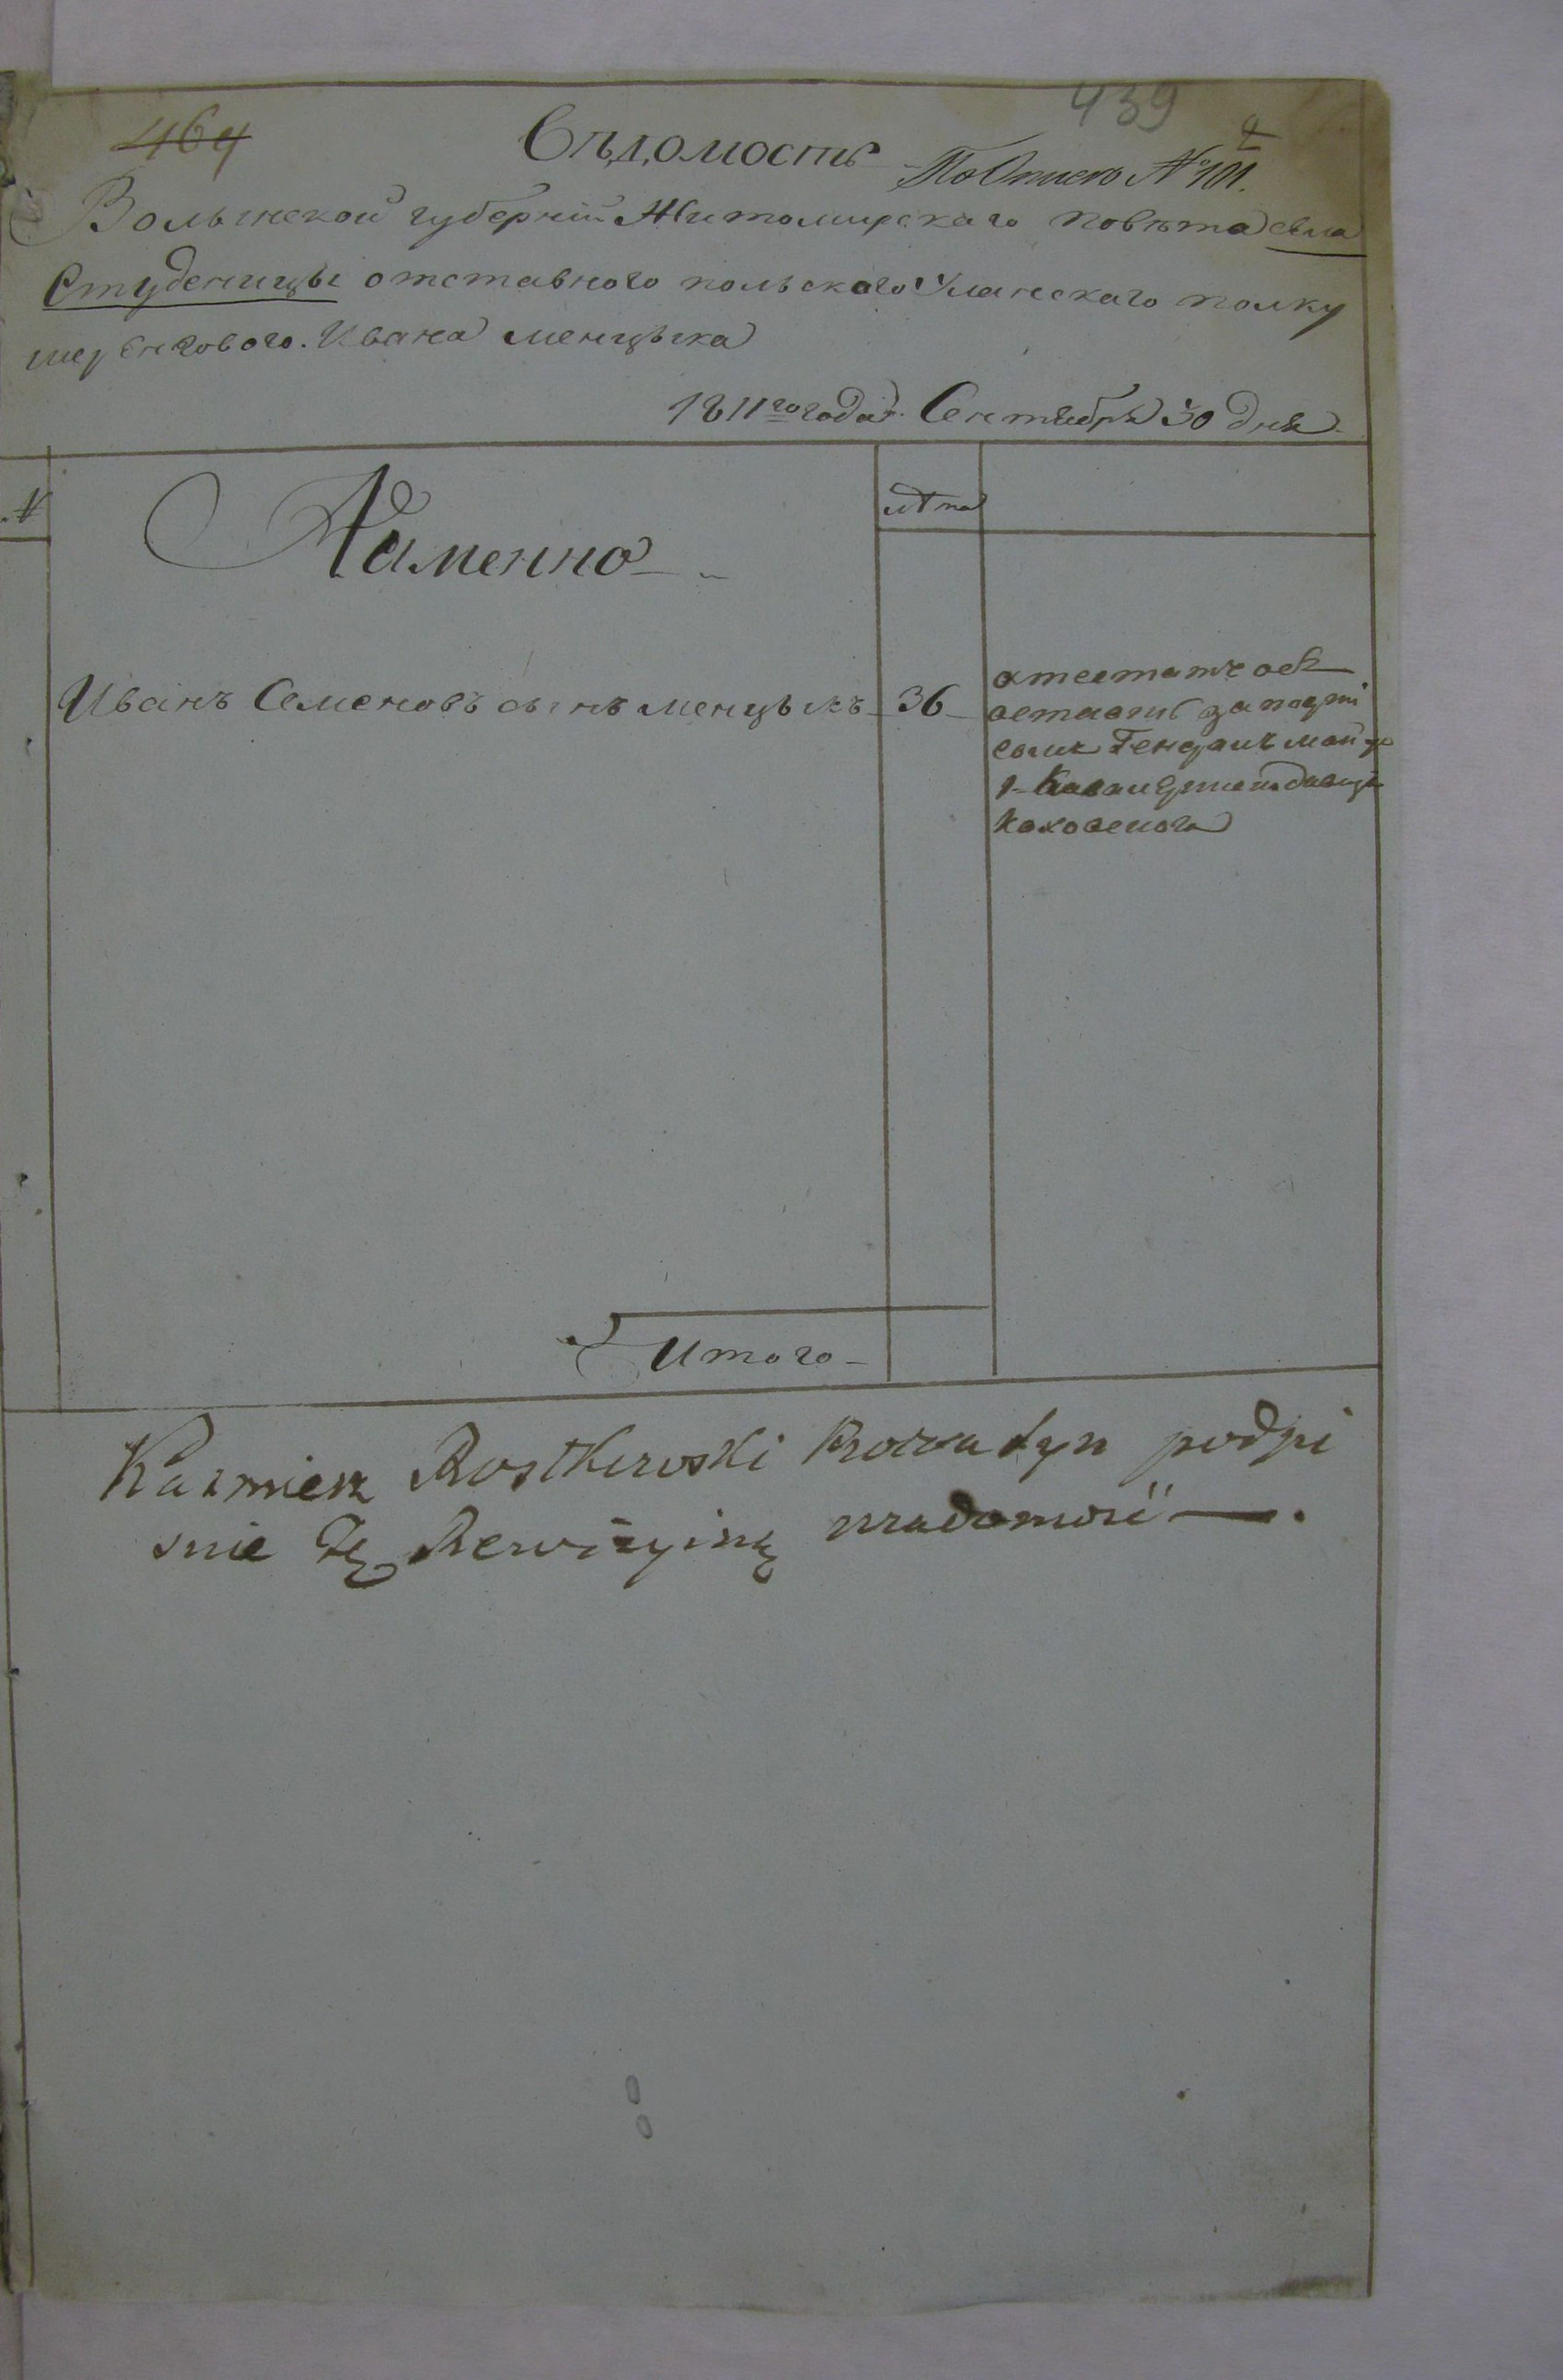 439
464
Вѣдомость
По Описю № 101.
Волынской губерніи Житомирскаго повѣта села
Студеницы отставного польского Уланскаго полку
шеренгового. Ивана менцыка
1811го года. Сентября 30 дня
№
А именно
лѣта
Иванъ Семеновъ сынъ менцыкъ 36
атестатъ
за подпи
сомъ
Каховскога
Итого
Kazmierz Rostkowski podpi
suie tę Rewizyiną wiadomość